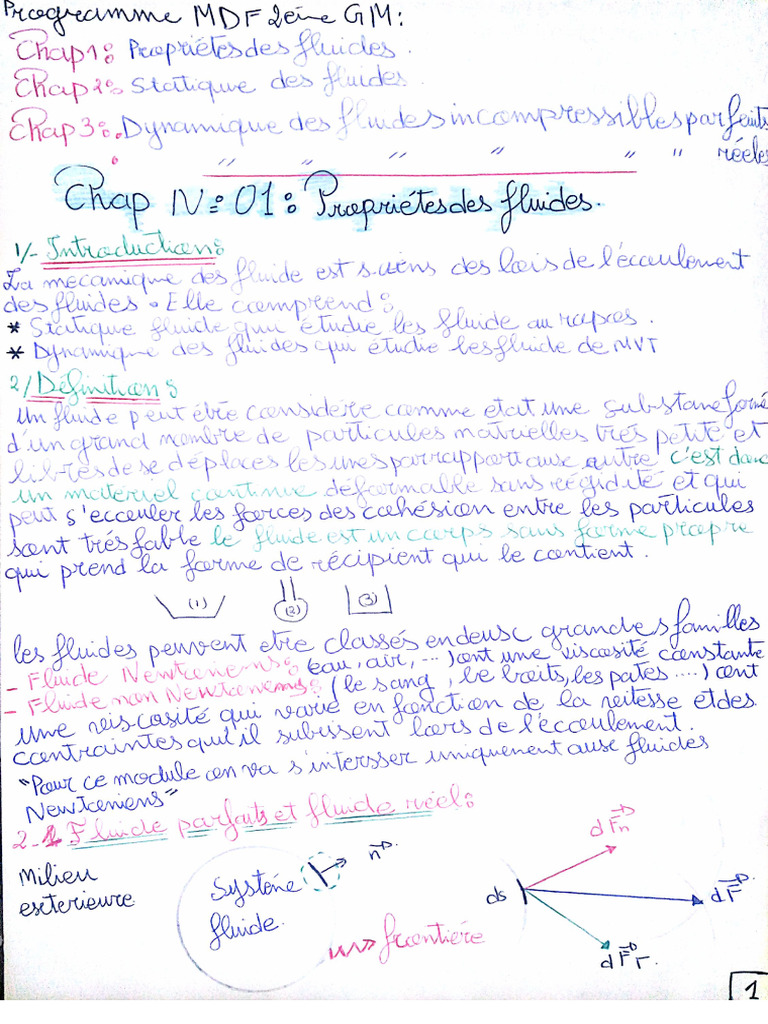 Programme MDF 2ème GM:
Chap1: Propriétés des fluides.
Chap2: Statique des fluides.
Chap3: Dynamique des fluides incompressibles parfaits
" " " " " " réeles
Chap N=01: Propriétes des fluides.
1/- Introduction:
La mecanique des fluide est s-ciens des lois de l'écoulement
des fluides. Elle comprend:
* Statique fluide qui étudie les fluide au repos.
* Dynamique des fluides qui étudie les fluide de MVT
2/ Définitions
Un fluide peut être considère comme etat une substane formé
d'un grand nombre de particules matuelles très petite et
libres de se déplaces les unes par rapport aux autre c'est donc
un matériel continue déformable sans régidité et qui
peut s'eccouler les forces des cohésion entre les particules
sont trés fable le fluide est un corps sans forme propre
qui prend la forme de récipient qui le contient.
(1) (2) (3)
les fluides peuvent etre classés en deux grandes familles
- Fluide Newtoniens: (eau, air, ...) ont une viscosité constante
- Fluide non Newtoniens: (le sang, les pates ....) ont
Une viscosité qui varie en fonction de la vitesse et des
contraintes qu'il subissent lors de l'écoulement.
"Pour ce module on va s'intersser uniquenent aux fluides
Newtoniens"
2-1 Fluide parfaits et fluide réel:
Milieu
exterieure
Systéme
fluide.
n
frontiére
ds
dFn
dF
dFτ.
1